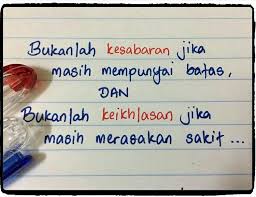 Bukanlah kesabaran jika
masih mempunyai batas,
DAN
Bukanlah keikhlasan jika
masih merasakan sakit ...